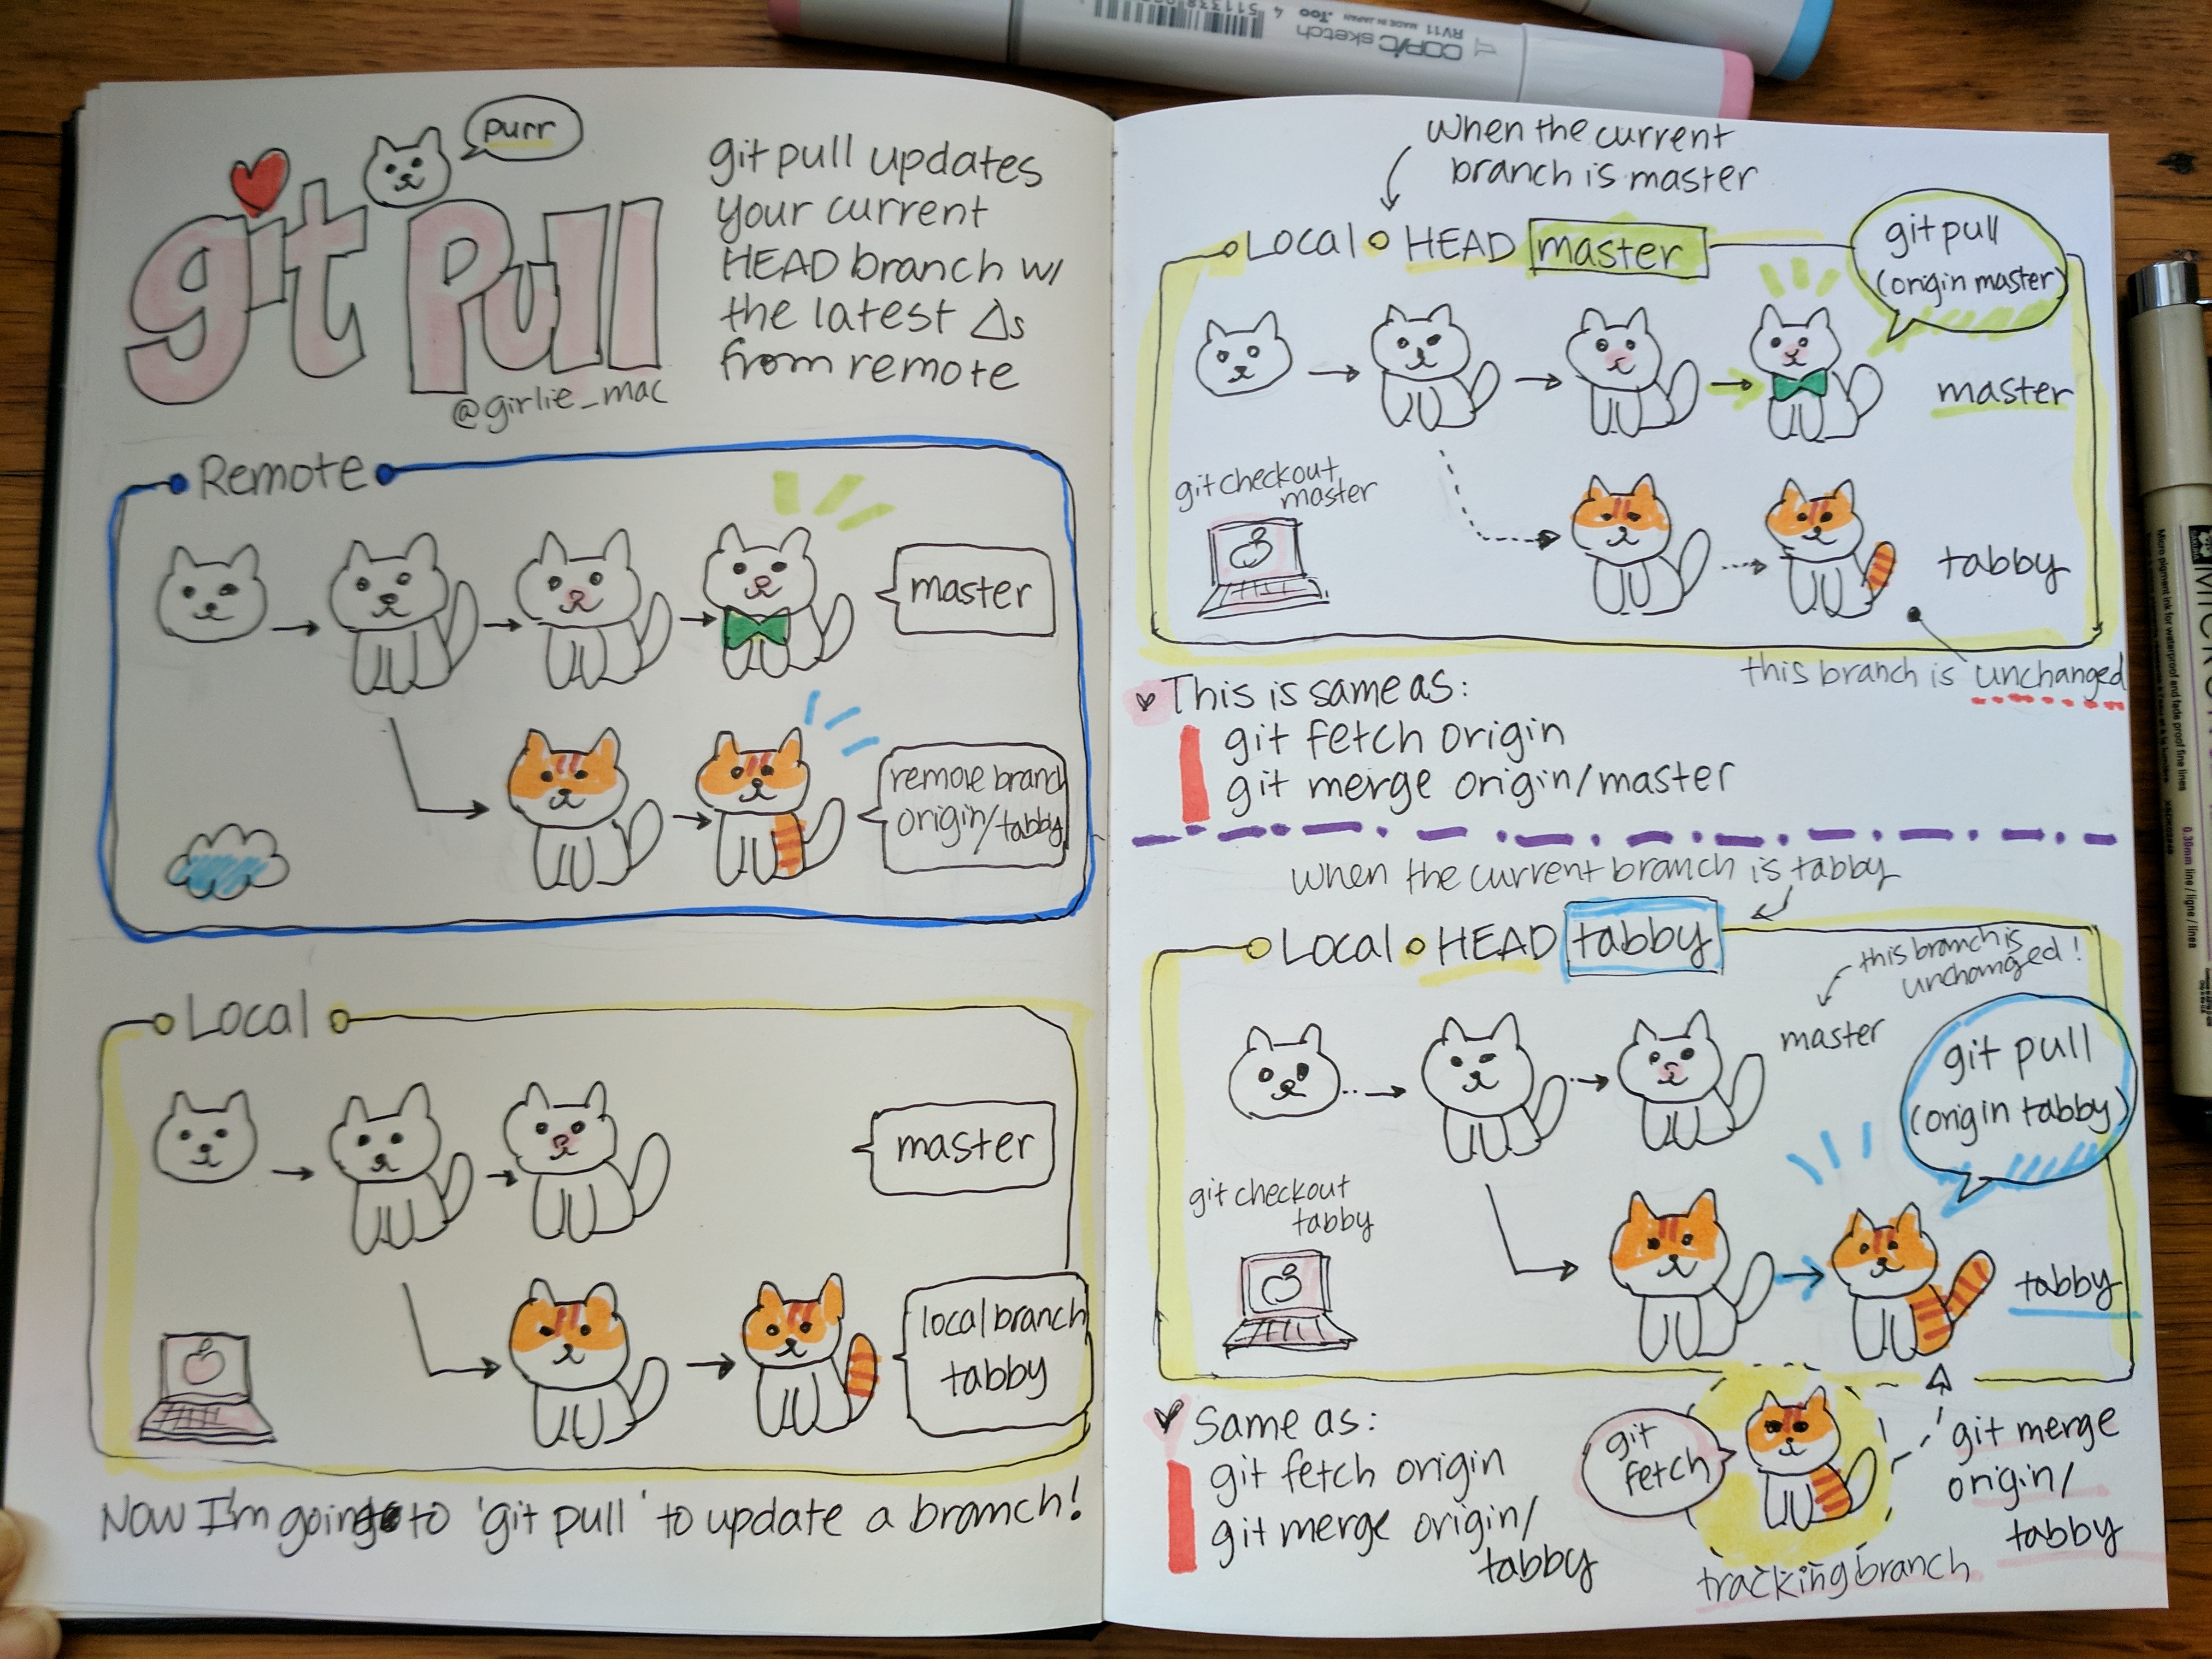 purr
git pull
@girlie_mac
git pull updates
your current
HEAD branch w/
the latest Δs
from remote
Remote
master
remote branch
origin/tabby
Local
master
local branch
tabby
Now I'm going to 'git pull' to update a branch!
When the current
branch is master
Local HEAD master
git pull
(origin master)
master
git checkout
master
tabby
this branch is unchanged
This is same as:
git fetch origin
git merge origin/master
When the current branch is tabby
Local HEAD tabby
this branch is
unchanged!
master
git pull
(origin tabby)
git checkout
tabby
tabby
Same as:
git fetch origin
git merge origin/
tabby
git
fetch
git merge
origin/
tabby
tracking branch
COPIC sketch
RV11 MADE IN JAPAN .Too
Micro pigment ink for waterproof and fade proof fine lines
0.30mm line / ligne / linea